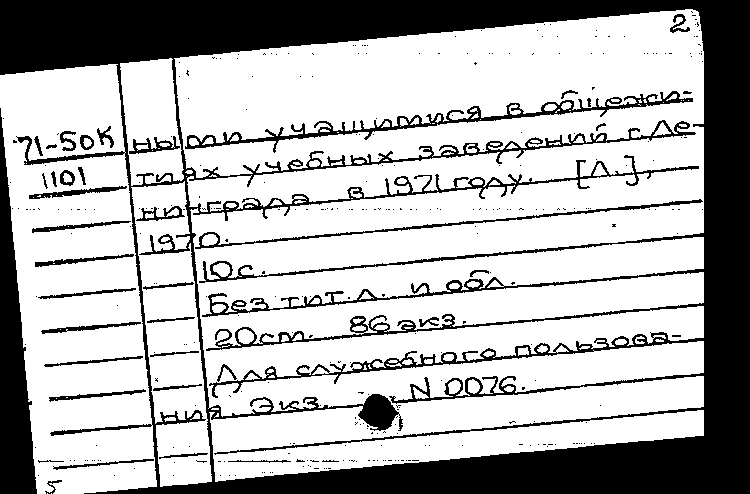 2
71-50К ными учащимися в общежи-
1101 тиях учебных заведений г.Ле-
нинграда в 1971 году. [Л.],
1970.
10с.
Без тит.л. и обл.
20cm. 86 экз.
Для служебного пользова-
ния. Экз. N 0076.
5